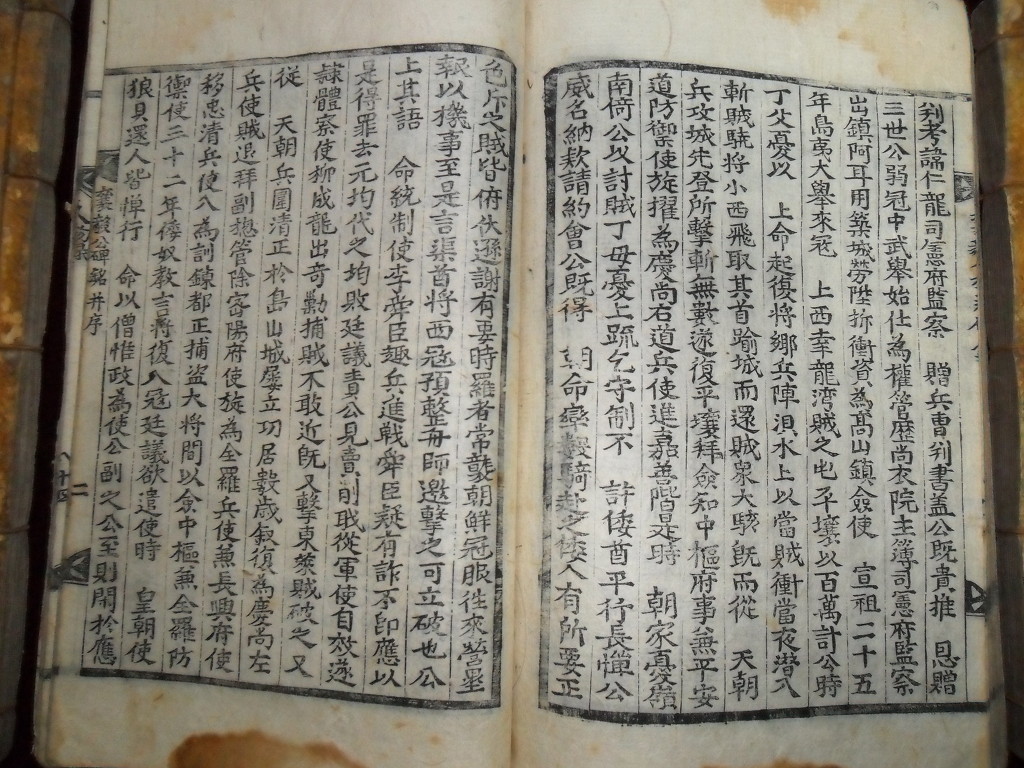 判考諱仁龍司憲府監察　贈兵曹判書盖公既貴推　恩贈
三世公弱冠中武擧始仕為權管歷尚衣院主簿司憲府監察
出鎮阿耳用築城勞陞折衝資為高山鎮僉使　宣祖二十五
年島夷大擧來寇　上西幸龍湾賊之屯平壤以百萬計公時
丁父憂以　上命起復將鄉兵陣浿水上以當賊衝當夜潜入
斬賊驍將小西飛取其首踰城而還賊衆大駭既而從　天朝
兵攻城先登所擊斬無數遂復平壤拜僉知中樞府事兼平安
道防禦使旋擢為慶尚右道兵使進嘉善階是時　朝家憂嶺
南倚公以討賊丁毋憂上疏乞守制不　許倭酋平行長憚公
威名納欵請約會公既得　朝命率數騎赴之倭人有所要正
色斥之賊皆俯伏遜謝有要時羅者常襲朝鮮冠服徃來營壘
報以機事至是言渠酋將西寇預整舟師邀擊之可立破也公
上其語　命統制使李舜臣趣兵進戰舜臣疑有詐不即應以
是得罪去元均代之均敗廷議責公見賣削職從軍使自效遂
隷體察使柳成龍出奇勦捕賊不敢近既又擊東萊賊破之又
從　天朝兵圍清正於島山城屢立功居數歲叙復為慶尚左
兵使賊退拜副摠管除密陽府使旋為全羅兵使兼長興府使
移忠清兵使入為訓鍊都正捕盗大將間以僉中樞兼全羅防
禦使三十二年倭奴敎言將復入寇廷議欲遣使時　皇朝使
狼貝還人皆憚行　命以僧惟政為使公副之公至則開於應
襄毅公碑銘并序
二
八十四